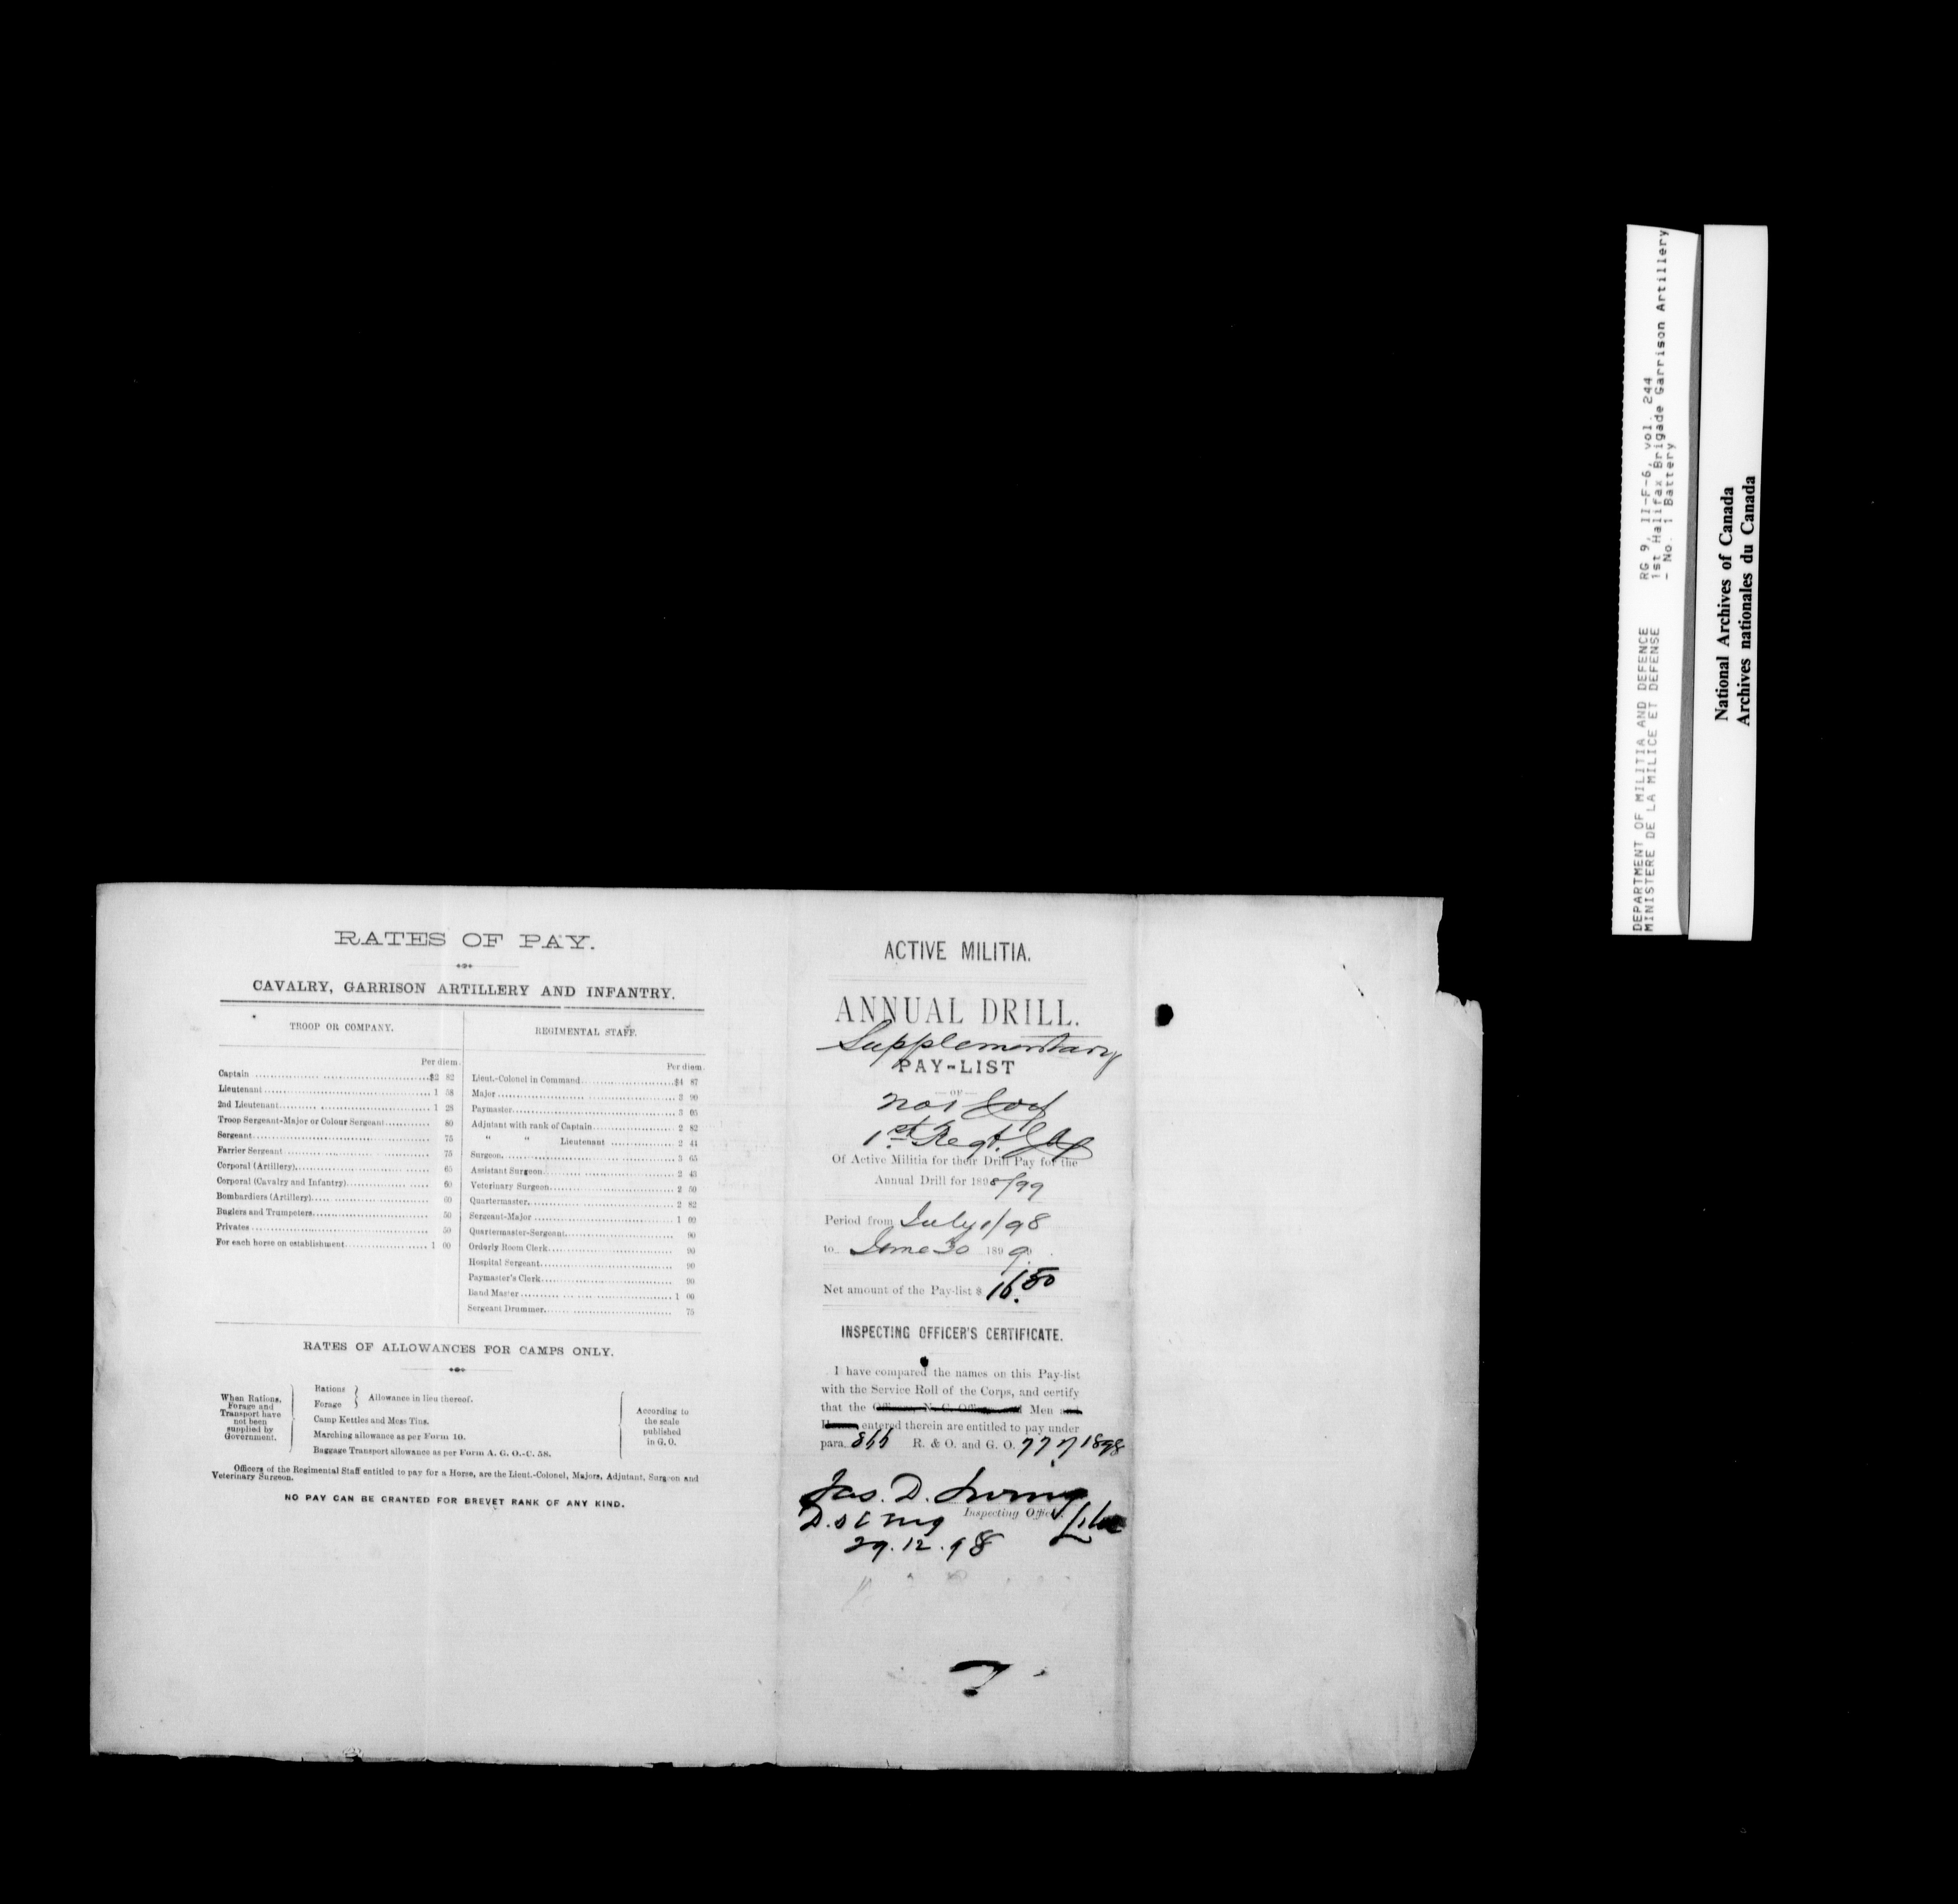 RATES OF PAY.
CAVALRY, GARRISON ARTILLERY AND INFANTRY.
TROOP OR COMPANY.
Per diem.
Captain $2 82
Lieutenant 1 58
2nd Lieutenant 1 28
Troop Sergeant-Major or Colour Sergeant 80
Sergeant 75
Farrier Sergeant 75
Corporal (Artillery) 65
Corporal (Cavalry and Infantry) 60
Bombardiers (Artillery) 60
Buglers and Trumpeters 50
Privates 50
For each horse on establishment 1 00
REGIMENTAL STAFF.
Per diem.
Lieut.-Colonel in Command $4 87
Major 3 90
Paymaster 3 05
Adjutant with rank of Captain 2 82
" " Lieutenant 2 44
Surgeon 3 65
Assistant Surgeon 2 43
Veterinary Surgeon 2 50
Quartermaster 2 82
Sergeant-Major 1 00
Quartermaster-Sergeant 90
Orderly Room Clerk 90
Hospital Sergeant 90
Paymaster's Clerk 90
Band Master 1 00
Sergeant Drummer 75
RATES OF ALLOWANCES FOR CAMPS ONLY.
When Rations,
Forage and
Transport have
not been
supplied by
Government.
Rations
Forage
Allowance in lieu thereof.
Camp Kettles and Mess Tins.
Marching allowance as per Form 10.
Baggage Transport allowance as per Form A. G. O.-C. 58.
According to
the scale
published
in G. O.
Officers of the Regimental Staff entitled to pay for a Horse, are the Lieut.-Colonel, Majors, Adjutant, Surgeon and
Veterinary Surgeon.
NO PAY CAN BE GRANTED FOR BREVET RANK OF ANY KIND.
ACTIVE MILITIA.
ANNUAL DRILL.
Supplementary
PAY-LIST
OF
No 1 Coy
1st Regt.
Of Active Militia for their Drill Pay for the
Annual Drill for 1898/99
Period from July 1/98
to June 30 1899
Net amount of the Pay-list $ 16.50
INSPECTING OFFICER'S CERTIFICATE.
I have compared the names on this Pay-list
with the Service Roll of the Corps, and certify
that the Officers, N. C. Officers and Men and
Horses entered therein are entitled to pay under
para. R. & O. and G. O. 1898
Jas. D. Irving
Inspecting Officer.
29.12.98
DEPARTMENT OF MILITIA AND DEFENCE
MINISTERE DE LA MILICE ET DEFENSE
RG 9, II-F-6, vol. 244
1st Halifax Brigade Garrison Artillery
- No. 1 Battery
National Archives of Canada
Archives nationales du Canada